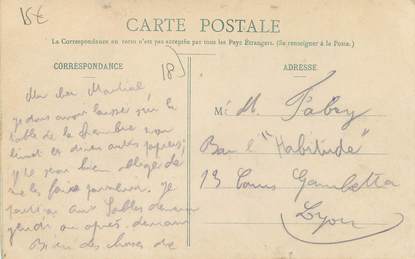 15€
CARTE POSTALE
La Correspondance au recto n'est pas acceptée par tous les Pays Étrangers. (Se renseigner à la Poste.)
CORRESPONDANCE
ADRESSE
18)
Mon cher Martial,
je dois avoir laissé sur la
table de la chambre mon
livret et divers autres papiers;
je te serai bien obligé de
me les faire parvenir. Je
partirai aux Sables demain
jeudi ou après demain
Bien des choses de
M. Fabry
Bar l'"Habitude"
13 Cours Gambetta
Lyon